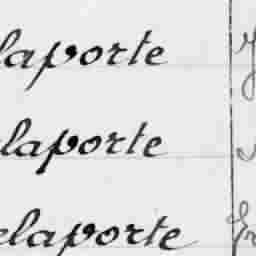 laporte
laporte
elaporte